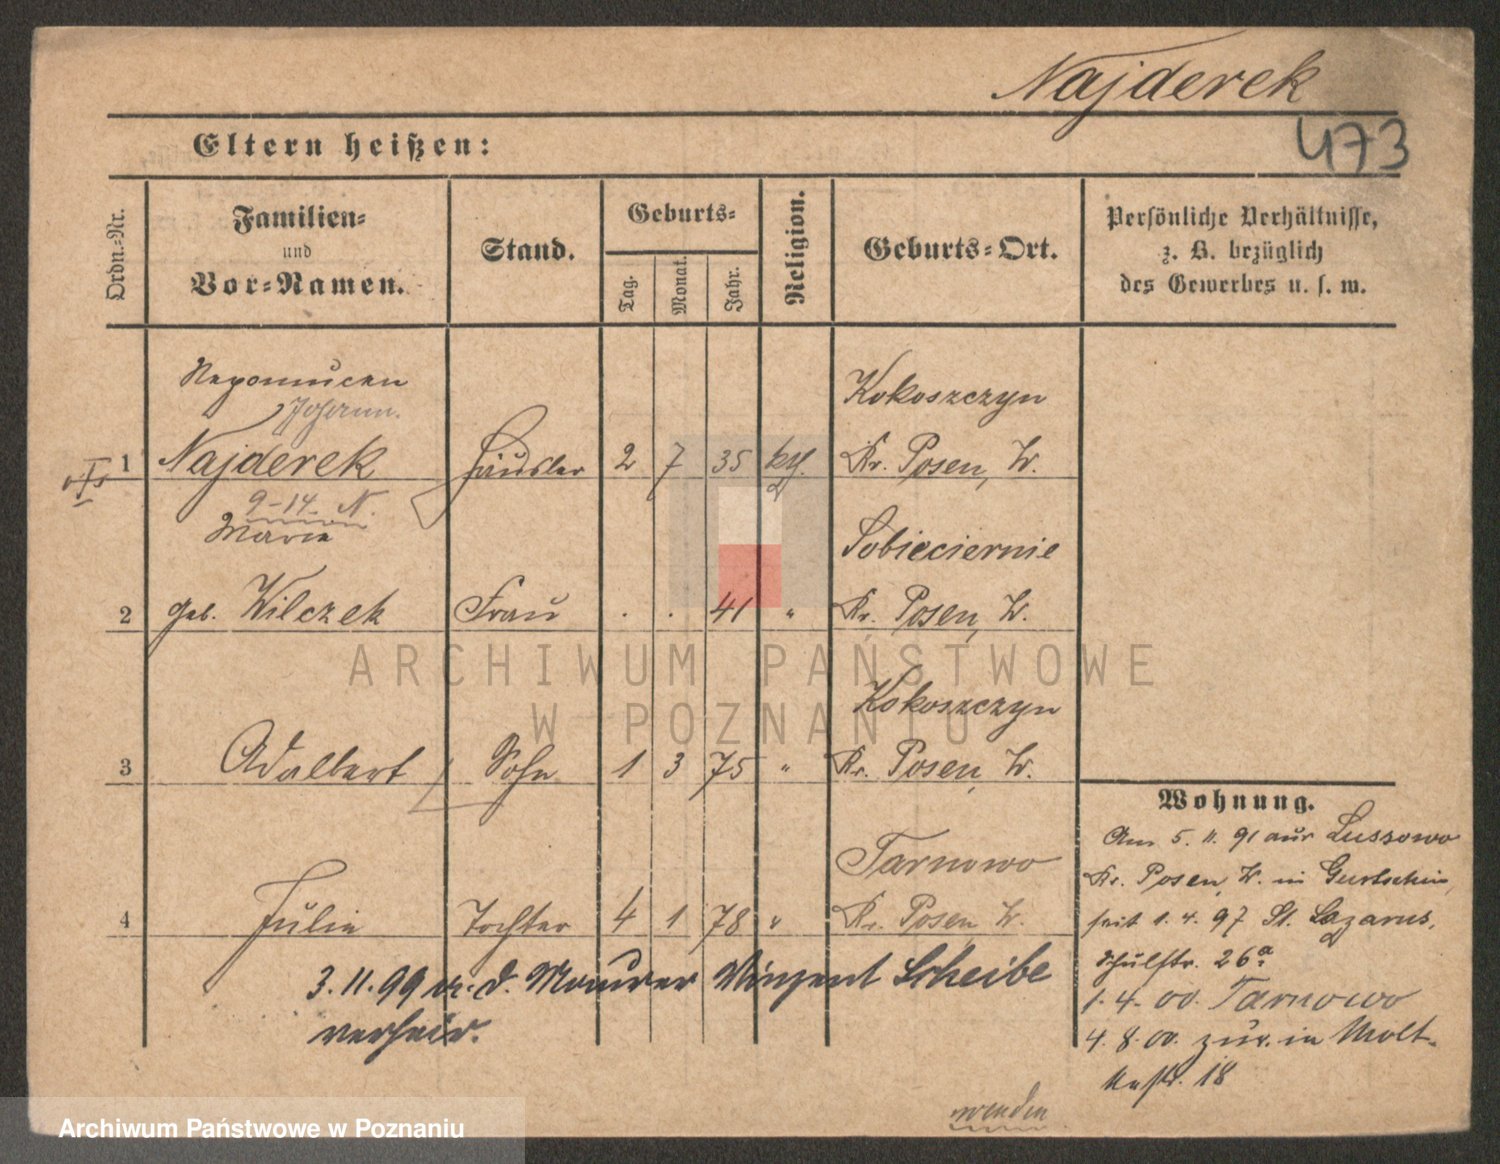 Najderek
473
Eltern heißen:
Ordn.-Nr.
Familien-
und
Vor-Namen.
Stand.
Geburts-
Tag.
Monat.
Jahr.
Religion.
Geburts-Ort.
Persönliche Verhältnisse,
z. B. bezüglich
des Gewerbes u. s. w.
Nepomucen
Johann.
1 Najderek Häusler 2 7 35 kth. Kokoszczyn
Kr. Posen, W.
9-14 N.
Maria
2 geb. Wilczek Frau . . 41 " Sobieciernie
Kr. Posen, W.
3 Adalbert Sohn 1 3 75 " Kokoszczyn
Kr. Posen, W.
4 Julie Tochter 4 1 78 " Tarnowo
Kr. Posen W.
3.11.99 m. d. Maurer Vinzent Scheibe
verheir.
Wohnung.
Am 5. 11. 91 aus Lussowo
Kr. Posen, W. in Gurtschin,
seit 1. 4. 97 St. Lazarus,
Schulstr. 26a
1. 4. 00. Tarnowo
4. 8. 00. zur. in Molt-
kestr. 18
wenden
ARCHIWUM PAŃSTWOWE
W POZNANIU
Archiwum Państwowe w Poznaniu